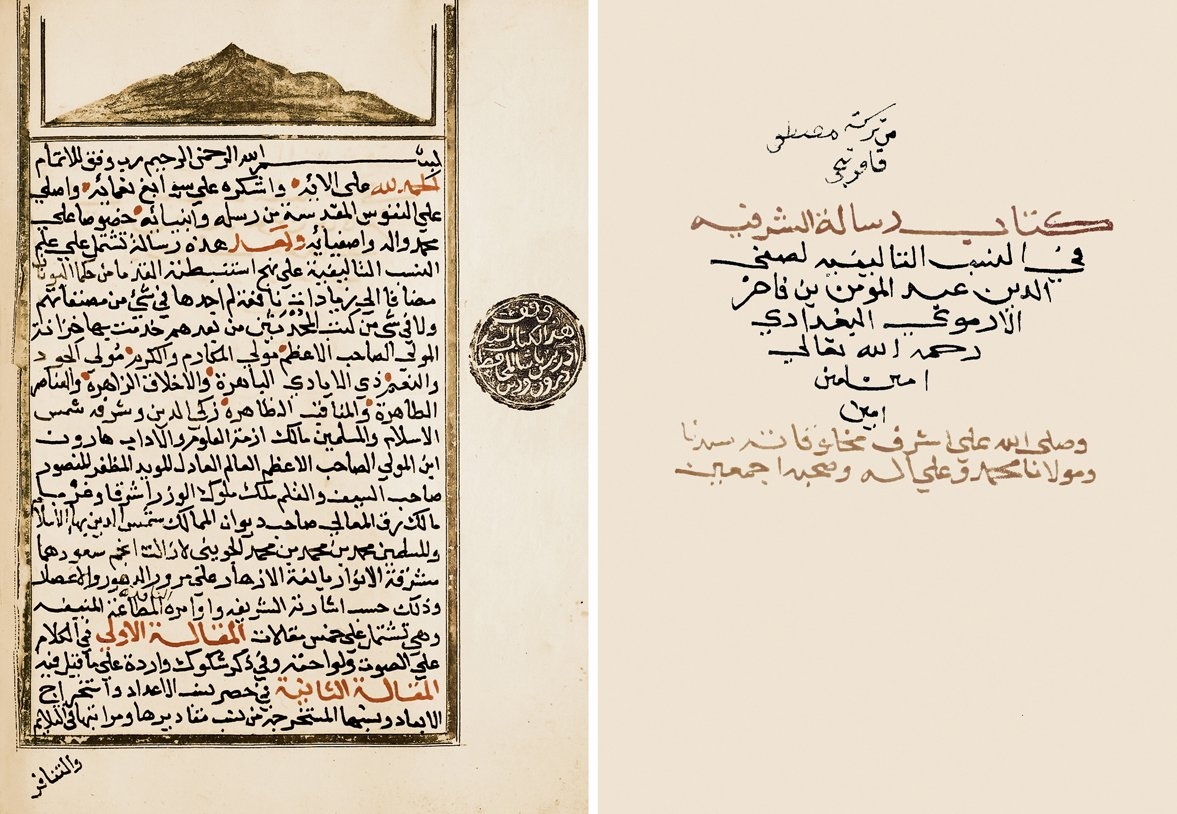 من تركة مصطفى
قافرنجي
كتاب رسالة الشرفيه
في النسب التاليفيه لصفي
الدين عبد المؤمن بن فاخر
الارموي البغدادي
رحمه الله تعالي
امين امين
امين
وصلى الله على اشرف مخلوقاته سيدنا
ومولانا محمد وعلي اله وصحبه اجمعين
بسم الله الرحمن الرحيم رب وفق للاتمام
الحمد لله على الايه واشكره على سوابغ نعمايه واصلي
على النفوس المقدسة من رسله وانبيائه خصوصا على
محمد واله واصفيايه وبعد هذه رسالة تشتمل على علم
النسب التاليفية على نهج استنبطته القدما من حكما اليونان
مضافا الى زيادات نافعة لم اجدها في شئ من مصنفاتهم
ولا في شئ من كتب المحدثين من بعدهم خدمت بها خزانة
المولي الصاحب الاعظم مولي المكارم والكرم مولي الجود
والنعم ذي الايادي الباهرة والاخلاق الزاهرة والعناصر
الطاهرة والمناقب الظاهرة شرف الدين شمس
الاسلام والمسلمين مالك ازمة العلوم والاداب هارون
ابن المولي الصاحب الاعظم العالم العادل المويد المظفر المنصور
صاحب السيف والقلم ملك ملوك الوزرا شرقا وغربا
مالك رق المعالي صاحب ديوان الممالك شمس الدين بها الاسلام
والمسلمين محمد بن محمد بن محمد الجويني لا زالت انجم سعودهما
مشرقة الانوار يانعة الازهار على مرور الدهور والاعصار
وذلك حسب اشارته الشريفه واوامره المطاعة المنيفه
وهي تشتمل على خمس مقالات المقالة الاولي في الكلام
على الصوت ولواحقه وفي ذكر شكوك واردة على ما قيل فيه
المقالة الثانية في حصر نسب الاعداد واستخراج
الابعاد ونسبها المستخرجة من نسب مقاديرها ومراتبها في التلائم
والتنافر
وقف
هذا الكتاب السيد
ادريس